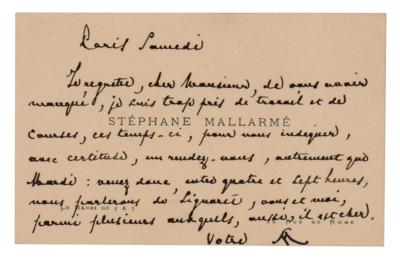 Paris Samedi
Je regrette, cher Monsieur, de vous avoir
manqué, je suis trop pris de travail et de
STÉPHANE MALLARMÉ
courses, ces temps-ci, pour vous indiquer,
avec certitude, un rendez-vous, autrement que
Mardi : venez donc, entre quatre et sept heures,
nous parlerons de vous et moi,
LE MARDI DE 4 A 7
parmi plusieurs auxquels, aussi, il est cher.
RUE DE ROME
Votre